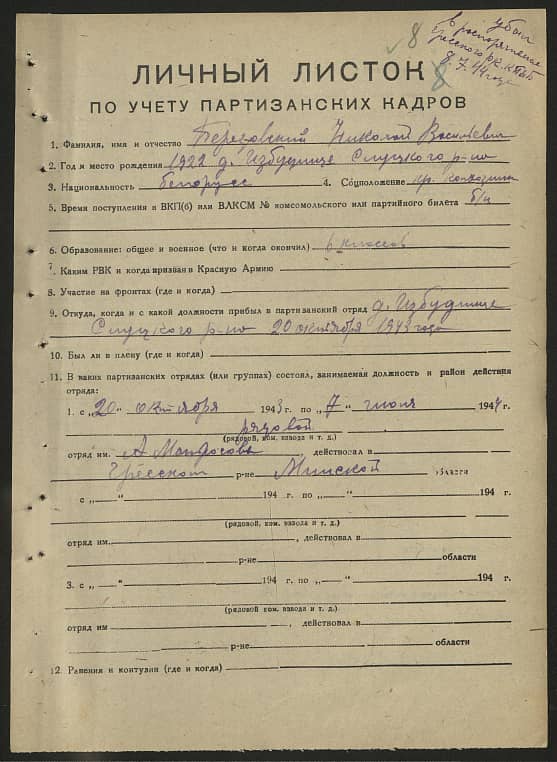 8 убыл
в распоряжение
Гресского РК КПбБ
8.7.44 года
ЛИЧНЫЙ ЛИСТОК 8
ПО УЧЕТУ ПАРТИЗАНСКИХ КАДРОВ
1. Фамилия, имя и отчество Николай Васильевич
2. Год и место рождения 1922 д. Избудище Слуцкого р-на
3. Национальность белорусс 4. Соцположение кр. колхозник
5. Время поступления в ВКП(б) или ВЛКСМ № комсомольского или партийного билета б/п
6. Образование: общее и военное (что и когда окончил) 6 классов
7. Каким РВК и когда призван в Красную Армию
8. Участие на фронтах (где и когда)
9. Откуда, когда и с какой должности прибыл в партизанский отряд д. Избудище
Слуцкого р-на 20 октября 1943 года
10. Был ли в плену (где и когда)
11. В каких партизанских отрядах (или группах) состоял, занимаемая должность и район действия
отряда:
1. с „20“ октября 1943 г. по „7“ июля 1944 г.
рядовой
(рядовой, ком. взвода и т. д.)
отряд им. А. Матросова действовал в
Гресском р-не Минской области
с „ “ 194 г. по „ “ 194 г.
(рядовой, ком. взвода и т. д.)
отряд им. , действовал в
р-не области
3. с „ “ 194 г. по „ “ 194 г.
(рядовой ком. взвода и т. д.)
отряд им , действовал в
р-не области
12. Ранения и контузии (где и когда)